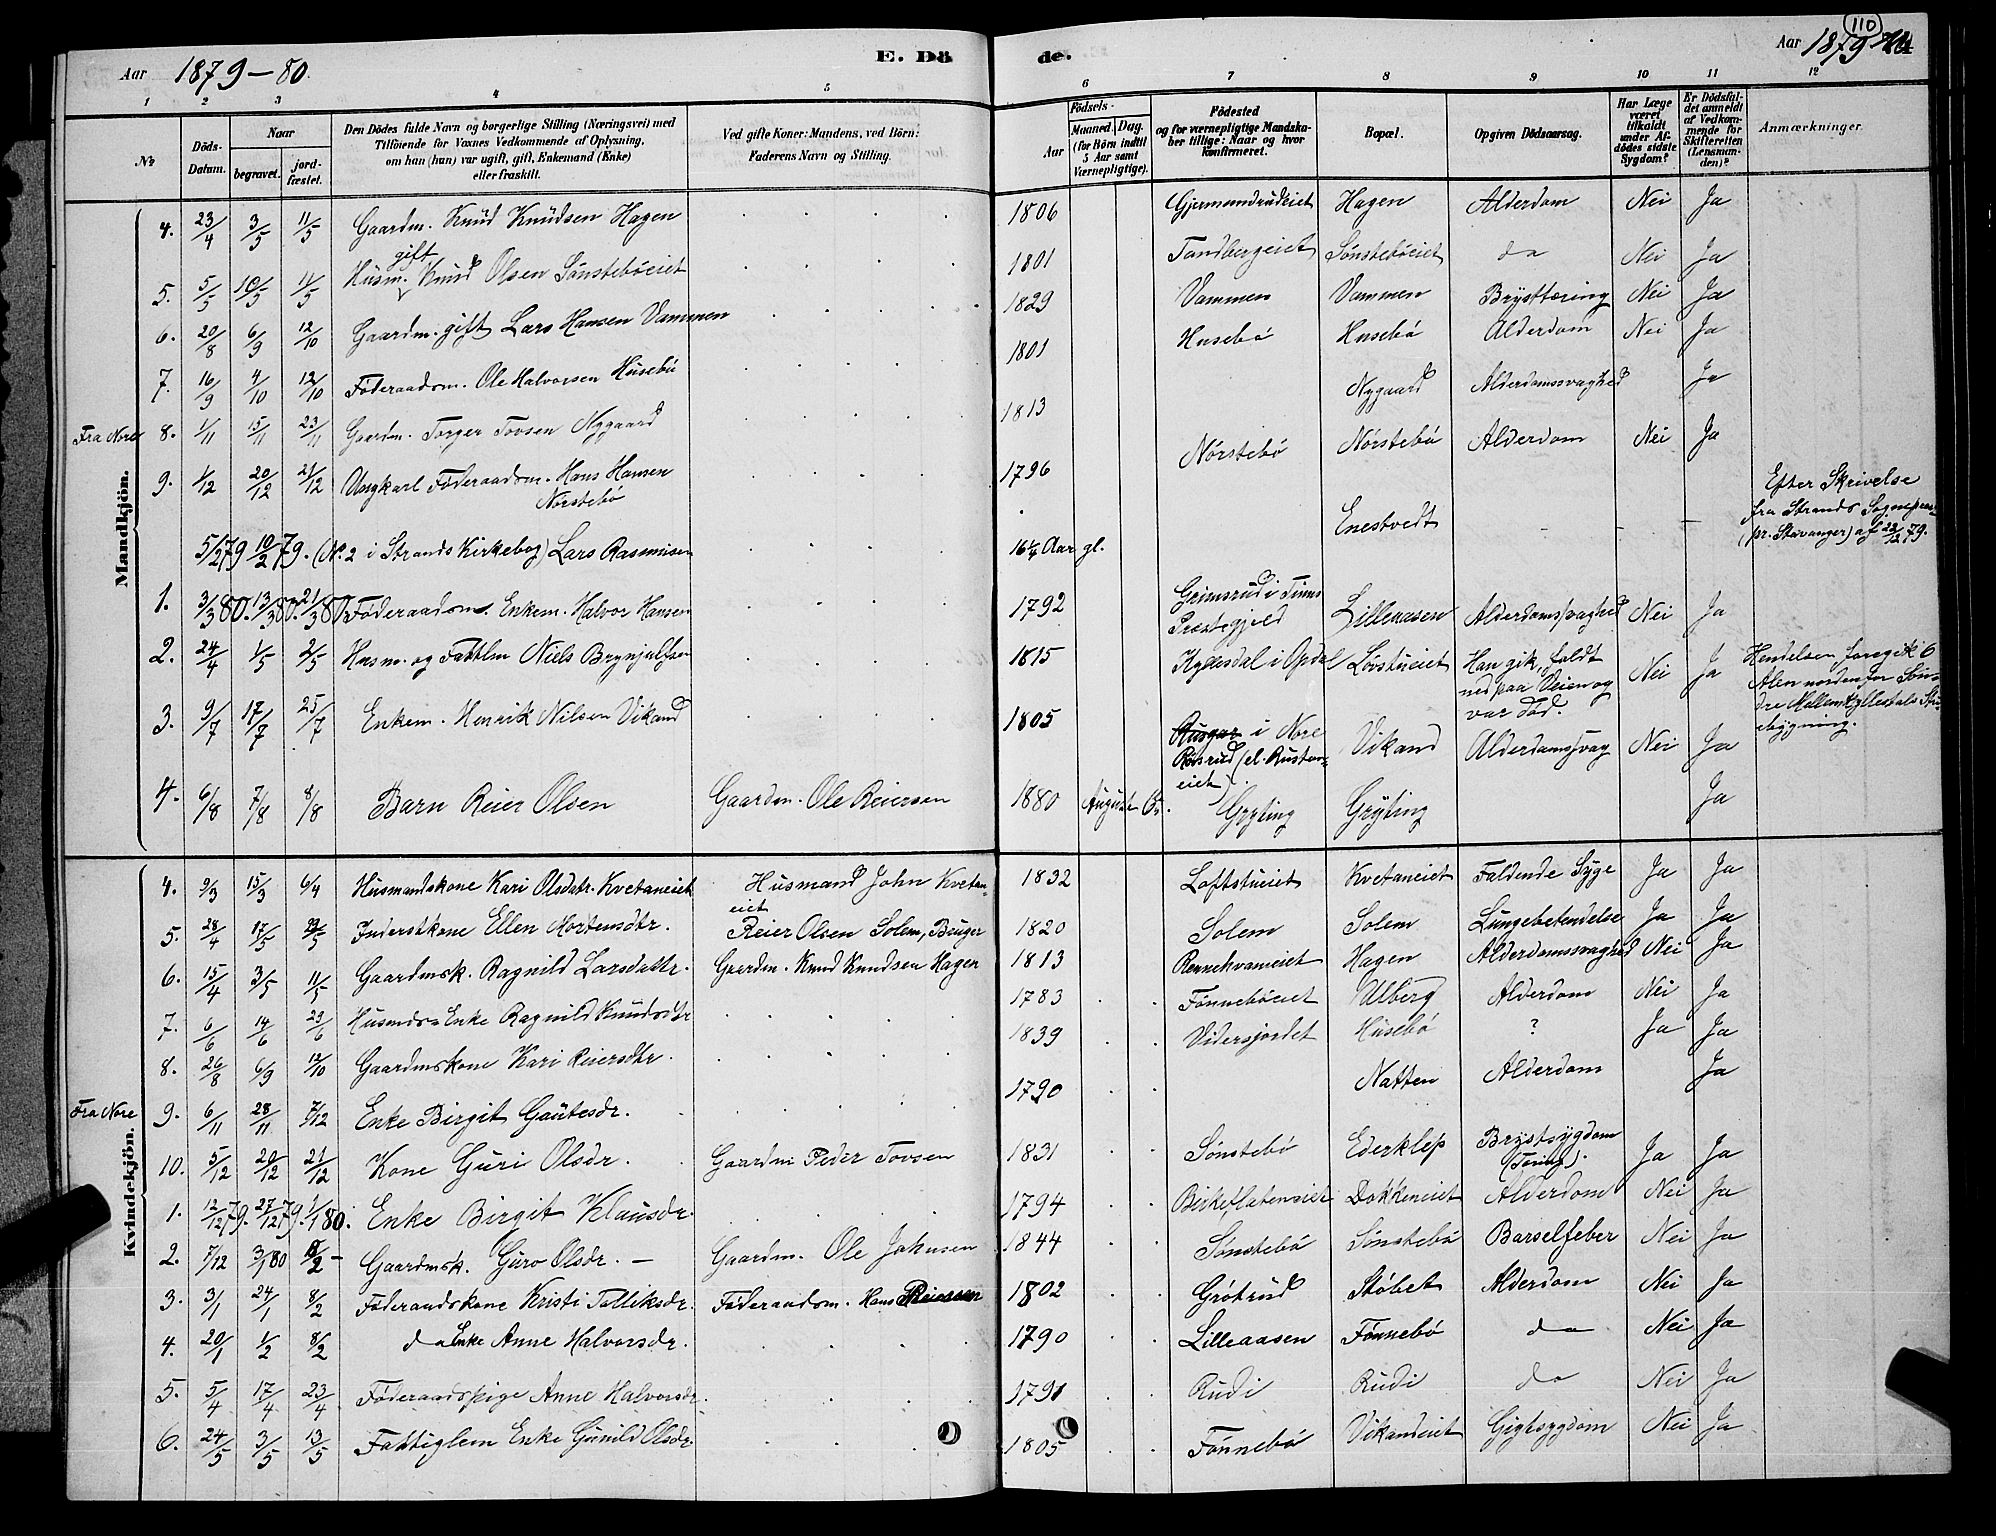 110
Aar 1879-80. E. Döde. Aar 1879
1 2 3 4 5 6 7 8 9 10 11 12
No
Döds-Datum.
Naar
begravet.
jord-fæstet.
Den Dödes fulde Navn og borgerlige Stilling (Næringsvei) med
Tilföiende for Voxnes Vedkommende af Oplysning,
om han (hun) var ugift, gift, Enkemand (Enke)
eller fraskilt.
Ved gifte Koner: Mandens, ved Börn:
Faderens Navn og Stilling.
Födsels-
Aar
Maaned. Dag.
(for Börn indtil
5 Aar samt
Værnepligtige).
Födested
og for værnepligtige Mandska-
ber tillige: Naar og hvor
konfirmeret.
Bopæl.
Opgiven Dödsaarsag.
Har Læge
været
tilkaldt
under Af-
dödes sidste
Sygdom?
Er Dödsfal-
det anmeldt
af Vedkom-
mende for
Skifteretten
(Lensman-
den)?
Anmærkninger.
Mandkjön.
4. 23/4 3/5 11/5 Gaardm. Knud Knudsen Hagen 1806 Gjermundrudeiet Hagen Alderdom Nei Ja
gift
5. 5/5 10/5 11/5 Husm. Knud Olsen Sønstebøeiet 1801 Tandbergeiet Sønstebøeiet do Nei Ja
6. 20/8 6/9 12/10 Gaardm. gift Lars Hansen Vammen 1829 Vammen Vammen Brysttæring Nei Ja
7. 16/9 4/10 12/10 Føderaadsm. Ole Halvorsen Husebø 1801 Husebø Husebø Alderdom Nei Ja
Fra Nore 8. 1/11 15/11 23/11 Gaardm. Torger Tovsen Nygaard 1813 Nygaard Alderdomssvaghed Ja
9. 1/12 20/12 21/12 Ungkarl Føderaadsm. Hans Hansen
Nørstebø 1796 Nørstebø Nørstebø Alderdom Nei Ja
5/2 79 10/2 79. (No. 2 i Strands Kirkebog) Lars Rasmusen 16¼ Aar gl. Enestvedt - - - Efter Skrivelse
fra Strands Sognepræst
(pr. Stavanger) af 22/12 79.
1. 3/3 80. 13/3 80. 21/3 80 Føderaadsm. Enkem. Halvor Hansen 1792 Grimsrud i Tinns
Præstegjeld Lilleaasen Alderdomssvaghed Nei Ja
2. 24/4 1/5 2/5 Husm. og Fattlm Niels Brynjulfsen 1815 Kyllesdal i Opdal Løvstueiet Han gik, faldt
ned paa Veien og
var død. Nei Ja Hendelsen foregik 6
Alen nordenfor Søn-
dre
bygning.
3. 9/7 17/7 25/7 Enkem. Henrik Nilsen Vikand 1805 i Nore
Røsrud (el. Rustan-
eiet) Vikand Alderdomssvag Nei Ja
4. 6/8 7/8 8/8 Barn Reier Olsen Gaardm. Ole Reiersen 1880 August 6. Gryting Gryting Ja
Kvindekjön.
4. 9/3 15/3 6/4 Husmandskone Kari Olsdatr. Kvetaneiet Husmand John Kvetan-
eiet 1832 Loftstueiet Kvetaneiet Faldende Syge Ja Ja
5. 28/4 17/5 Inderstkone Ellen Mortensdtr. Reier Olsen Solem, Bruger 1820 Solem Solem Lungebetendelse Ja Ja
6. 15/4 3/5 11/5 Gaardmsk. Ragnild Larsdattr. Gaardm. Knud Knudsen Hagen 1813 Hagen Alderdomssvaghed Nei Ja
7. 6/6 14/6 23/6 Husmds Enke Ragnild Knudsdtr 1783 Fønnebøeiet Ulberg Alderdom Nei Ja
8. 26/8 6/9 12/10 Gaardmskone Kari Reiersdtr. 1839 Vidersjordet Husebø ? Ja Ja
Fra Nore 9. 6/11 28/11 7/12 Enke Birgit Gautesdr. 1790 Natten Alderdom Ja
10. 5/12 20/12 21/12 Kone Guri Olsdr. Gaardm Peder Tovsen 1831 Sønstebø Ederklep Brystsygdom
(Tæring). Ja Ja
1. 12/12 79. 27/12 79. 1/1 80. Enke Birgit Klausdr. 1794 Birkeflateneiet Dokkeneiet Alderdom Nei Ja
2. 7/12 3/1 80 8/2 - Gaardmsk. Guro Olsdr. - Gaardm. Ole Johnsen 1844 Sønstebø Sønstebø Barselfeber Nei Ja
3. 3/1 24/1 8/2 Føderaadskone Kristi Tolliksdr. Føderaadsm. Hans Reiersen 1802 Grøtrud Støbet Alderdom Nei Ja
4. 20/1 1/2 8/2 do Enke Anne Halvorsdr. 1790 Lilleaasen Fønnebø do Nei Ja
5. 5/4 17/4 23/4 Føderaadspige Anne Halvorsdr. 1791 Rudi Rudi do Nei Ja
6. 24/5 3/5 13/5 Fattiglem Enke Gunild Olsdr. 1805 Fønnebø Vikandeiet Gigtsygdom Nei Ja